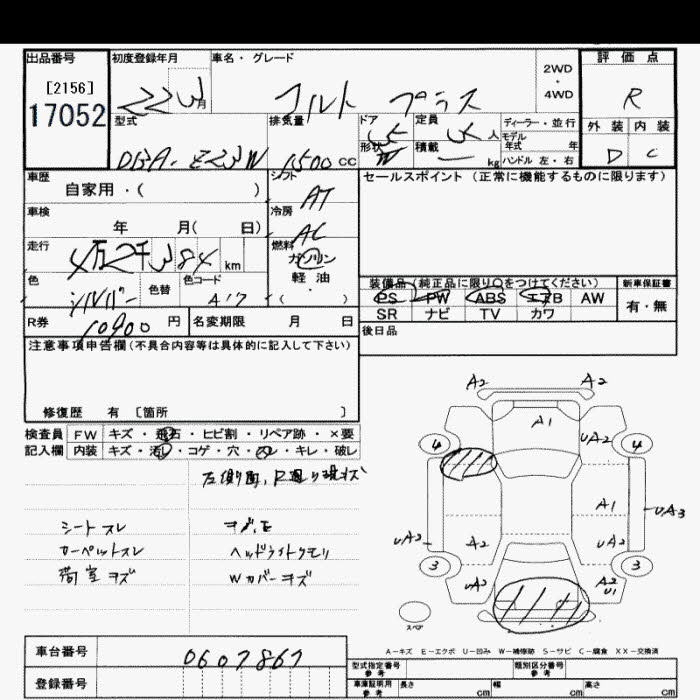 出品番号 初度登録年月 車名・グレード 2WD ・ 4WD 評価点
[2156]
17052
22 3月 コルト プラス R
型式 排気量 ドア 定員 人 ディーラー・並行 外装 内装
形状 積載 kg モデル年式 年 ハンドル 左・右
DBA-Z23W 1500 cc 5 W 5 D C
車歴 シフト セールスポイント (正常に機能するものに限ります)
自家用・( ) AT
車検 冷房
年 月( 日) AC
走行 燃料
4万2千384 km ガソリン
軽油・( )
色 色替 色コード 装備品 (純正品に限り○をつけてください) 新車保証書
シルバー A17
PS PW ABS エアB AW 有・無
SR ナビ TV カワ
R券 10900 円 名変期限 月 日 後日品
注意事項申告欄(不具合内容等は具体的に記入して下さい)
修復歴 有 〔箇所 〕
検査員 FW キズ・飛石・ヒビ割・リペア跡・×要
記入欄 内装 キズ・汚れ・コゲ・穴・スレ・キレ・破レ
左側面,R廻り現状
シートスレ キズ,E
カーペットスレ ヘッドライトクモリ
荷室キズ Wカバーキズ
A2 A2
A1
4 UA2 4
A1
UA3
UA3 A2 UA2
3 3
UA3 A2 U1
スペア
A-キズ E-エクボ U-凹み W-補修跡 S-サビ C-腐食 XX-交換済
車台番号 0607867
登録番号
型式指定番号 参考 類別区分番号 参考
車庫証明用 参考 長さ cm 幅 cm 高さ cm